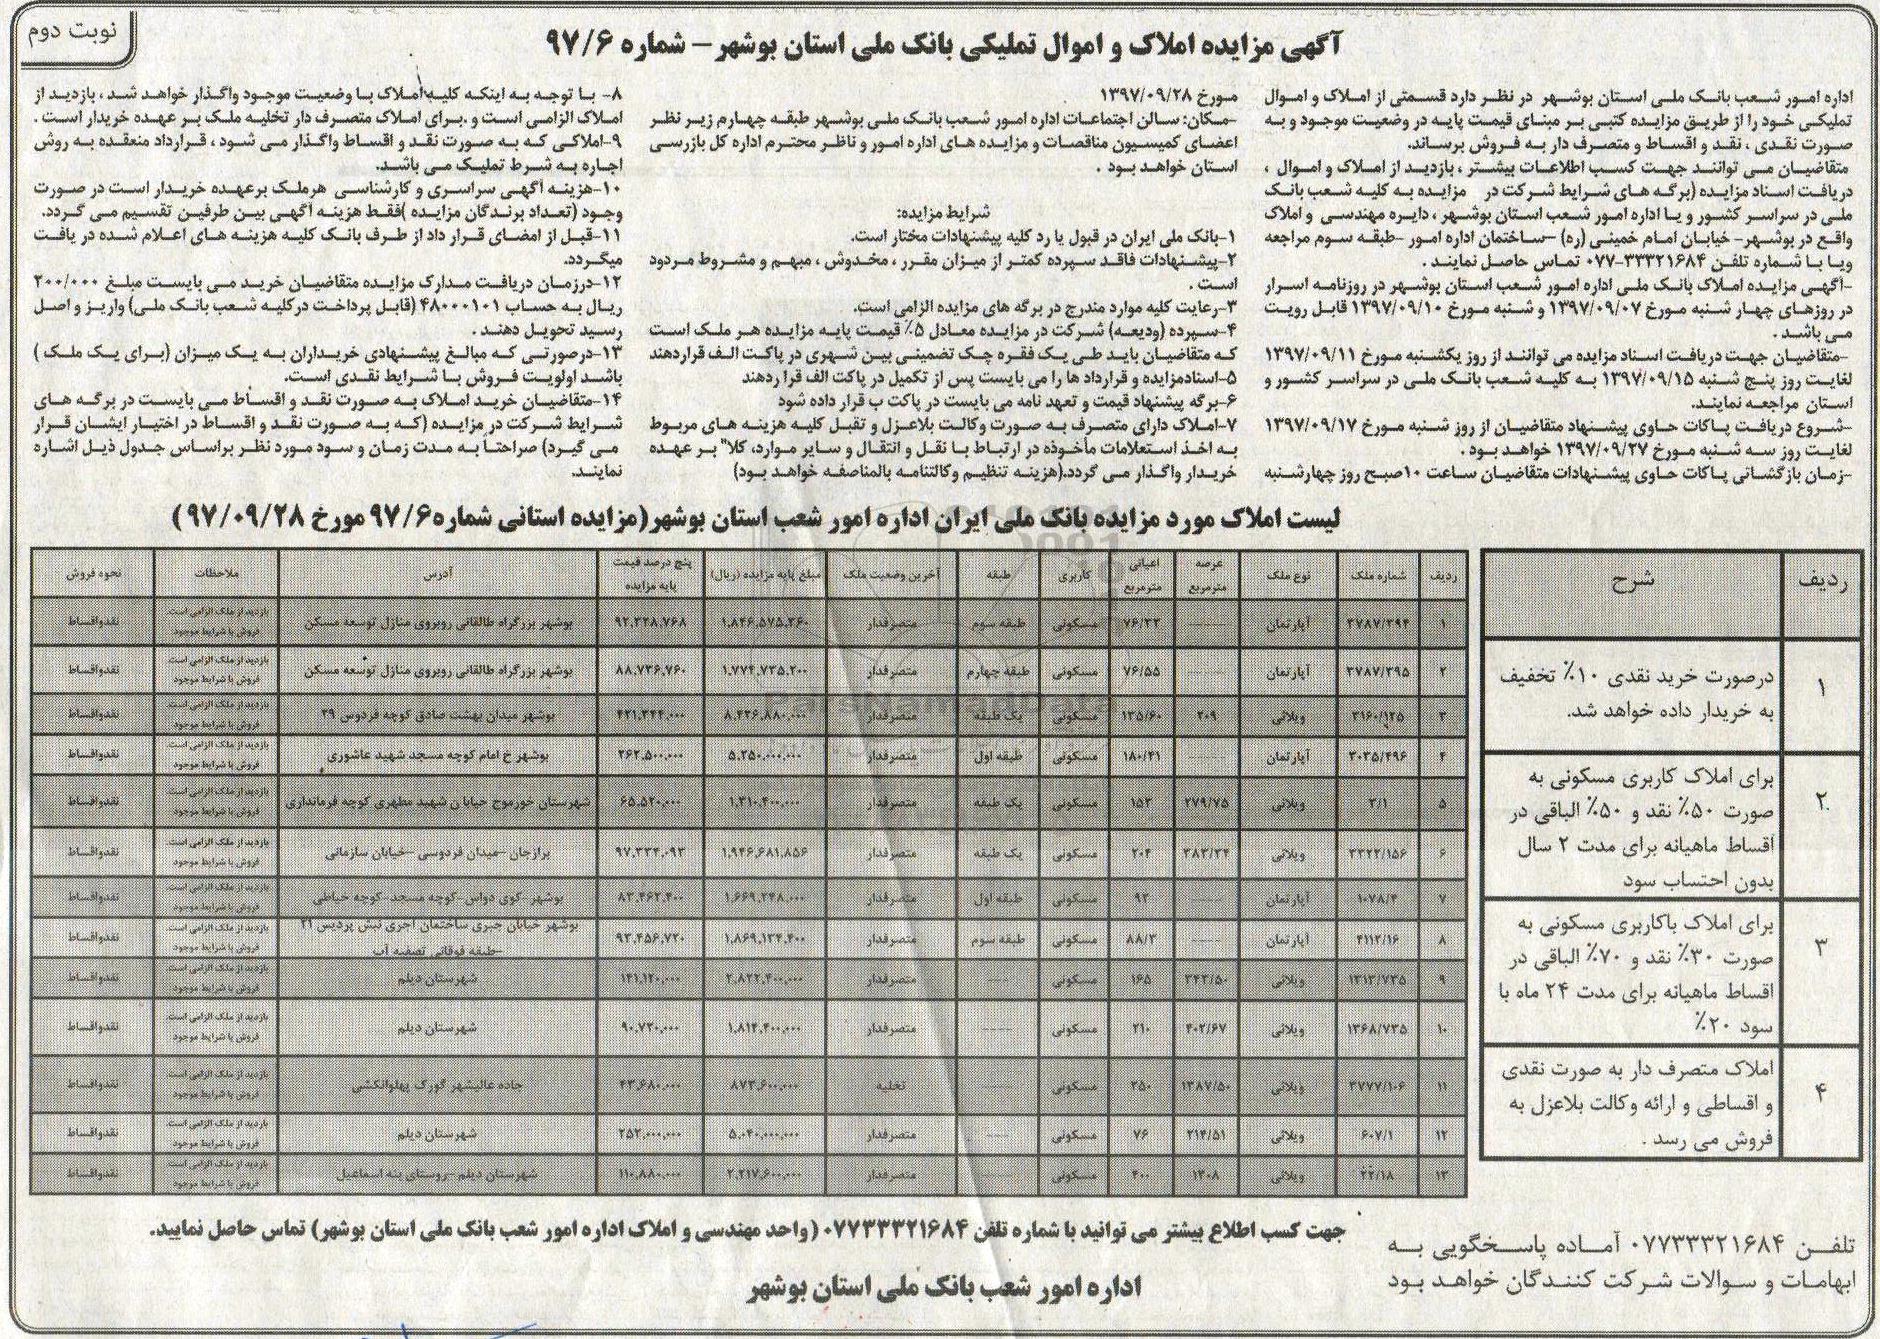 نوبت دوم
آگهی مزایده املاک و اموال تملیکی بانک ملی استان بوشهر – شماره ۹۷/۶
اداره امور شعب بانک ملی استان بوشهر در نظر دارد قسمتی از املاک و اموال
تملیکی خود را از طریق مزایده کتبی بر مبنای قیمت پایه در وضعیت موجود و به
صورت نقدی ، نقد و اقساط و متصرف دار به فروش برساند.
متقاضیان می توانند جهت کسب اطلاعات بیشتر ، بازدید از املاک و اموال ،
دریافت اسناد مزایده (برگه های شرایط شرکت در مزایده به کلیه شعب بانک
ملی در سراسر کشور و یا اداره امور شعب استان بوشهر ، دایره مهندسی و املاک
واقع در بوشهر– خیابان امام خمینی (ره) –ساختمان اداره امور –طبقه سوم مراجعه
ویا با شماره تلفن ۳۳۳۲۱۶۸۴-۰۷۷ تماس حاصل نمایند .
-آگهی مزایده املاک بانک ملی اداره امور شعب استان بوشهر در روزنامه اسرار
در روزهای چهار شنبه مورخ ۱۳۹۷/۰۹/۰۷ و شنبه مورخ ۱۳۹۷/۰۹/۱۰ قابل رویت
می باشد .
-متقاضیان جهت دریافت اسناد مزایده می توانند از روز یکشنبه مورخ ۱۳۹۷/۰۹/۱۱
لغایت روز پنج شنبه ۱۳۹۷/۰۹/۱۵ به کلیه شعب بانک ملی در سراسر کشور و
استان مراجعه نمایند.
-شروع دریافت پاکات حاوی پیشنهاد متقاضیان از روز شنبه مورخ ۱۳۹۷/۰۹/۱۷
لغایت روز سه شنبه مورخ ۱۳۹۷/۰۹/۲۷ خواهد بود .
-زمان بازگشائی پاکات حاوی پیشنهادات متقاضیان ساعت ۱۰صبح روز چهارشنبه
مورخ ۱۳۹۷/۰۹/۲۸
-مکان: سالن اجتماعات اداره امور شعب بانک ملی بوشهر طبقه چهارم زیر نظر
اعضای کمیسیون مناقصات و مزایده های اداره امور و ناظر محترم اداره کل بازرسی
استان خواهد بود .
شرایط مزایده:
۱-بانک ملی ایران در قبول یا رد کلیه پیشنهادات مختار است.
۲-پیشنهادات فاقد سپرده کمتر از میزان مقرر ، مخدوش ، مبهم و مشروط مردود
است .
۳-رعایت کلیه موارد مندرج در برگه های مزایده الزامی است.
۴-سپرده (ودیعه) شرکت در مزایده معادل ۵٪ قیمت پایه مزایده هر ملک است
که متقاضیان باید طی یک فقره چک تضمینی بین شهری در پاکت الف قراردهند
۵-اسنادمزایده و قرارداد ها را می بایست پس از تکمیل در پاکت الف قرا ردهند
۶-برگه پیشنهاد قیمت و تعهد نامه می بایست در پاکت ب قرار داده شود
۷-املاک دارای متصرف به صورت وکالت بلاعزل و تقبل کلیه هزینه های مربوط
به اخذ استعلامات مأخوذه در ارتباط با نقل و انتقال و سایر موارد، کلا" بر عهده
خریدار واگذار می گردد.(هزینه تنظیم وکالتنامه بالمناصفه خواهد بود)
۸- با توجه به اینکه کلیه املاک با وضعیت موجود واگذار خواهد شد ، بازدید از
املاک الزامی است و ،برای املاک متصرف دار تخلیه ملک بر عهده خریدار است .
۹-املاکی که به صورت نقد و اقساط واگذار می شود ، قرارداد منعقده به روش
اجاره به شرط تملیک می باشد.
۱۰-هزینه آگهی سراسری و کارشناسی هرملک برعهده خریدار است در صورت
وجود (تعداد برندگان مزایده )فقط هزینه آگهی بین طرفین تقسیم می گردد.
۱۱-قبل از امضای قرار داد از طرف بانک کلیه هزینه های اعلام شده در یافت
میگردد.
۱۲-درزمان دریافت مدارک مزایده متقاضیان خرید می بایست مبلغ ۲۰۰/۰۰۰
ریال به حساب ۴۸۰۰۰۱۰۱ (قابل پرداخت درکلیه شعب بانک ملی) واریز و اصل
رسید تحویل دهند .
۱۳-درصورتی که مبالغ پیشنهادی خریداران به یک میزان (برای یک ملک )
باشد اولویت فروش با شرایط نقدی است.
۱۴-متقاضیان خرید املاک به صورت نقد و اقساط می بایست در برگه های
شرایط شرکت در مزایده (که به صورت نقد و اقساط در اختیار ایشان قرار
می گیرد) صراحتاً به مدت زمان و سود مورد نظر براساس جدول ذیل اشاره
نمایند.
لیست املاک مورد مزایده بانک ملی ایران اداره امور شعب استان بوشهر(مزایده استانی شماره۹۷/۶ مورخ ۹۷/۰۹/۲۸)
ردیف شرح
۱ درصورت خرید نقدی ۱۰٪ تخفیف
به خریدار داده خواهد شد.
۲ برای املاک کاربری مسکونی به
صورت ۵۰٪ نقد و ۵۰٪ الباقی در
اقساط ماهیانه برای مدت ۲ سال
بدون احتساب سود
۳ برای املاک باکاربری مسکونی به
صورت ۳۰٪ نقد و ۷۰٪ الباقی در
اقساط ماهیانه برای مدت ۲۴ ماه با
سود ۲۰٪
۴ املاک متصرف دار به صورت نقدی
و اقساطی و ارائه وکالت بلاعزل به
فروش می رسد .
ردیف شماره ملک نوع ملک عرصه مترمربع اعیانی مترمربع کاربری طبقه آخرین وضعیت ملک مبلغ پایه مزایده (ریال) پنج درصد قیمت پایه مزایده آدرس ملاحظات نحوه فروش
۱ ۳۷۸۷/۳۹۴ آپارتمان ------ ۷۶/۳۲ مسکونی طبقه سوم متصرفدار ۱،۸۴۶،۵۷۵،۳۶۰ ۹۲،۳۲۸،۷۶۸ بوشهر بزرگراه طالقانی روبروی منازل توسعه مسکن بازدید از ملک الزامی است. فروش با شرایط موجود نقدواقساط
۲ ۳۷۸۷/۳۹۵ آپارتمان ------ ۷۶/۵۵ مسکونی طبقه چهارم متصرفدار ۱،۷۷۴،۷۳۵،۲۰۰ ۸۸،۷۳۶،۷۶۰ بوشهر بزرگراه طالقانی روبروی منازل توسعه مسکن بازدید از ملک الزامی است. فروش با شرایط موجود نقدواقساط
۳ ۳۱۶۰/۱۲۵ ویلائی ۲۰۹ ۱۳۵/۶۰ مسکونی یک طبقه متصرفدار ۸،۴۲۶،۸۸۰،۰۰۰ ۴۲۱،۳۴۴،۰۰۰ بوشهر میدان بهشت صادق کوچه فردوس ۲۹ بازدید از ملک الزامی است. فروش با شرایط موجود نقدواقساط
۴ ۳۰۳۵/۴۹۶ آپارتمان ------ ۱۸۰/۴۱ مسکونی طبقه اول متصرفدار ۵،۲۵۰،۰۰۰،۰۰۰ ۲۶۲،۵۰۰،۰۰۰ بوشهر خ امام کوچه مسجد شهید عاشوری بازدید از ملک الزامی است. فروش با شرایط موجود نقدواقساط
۵ ۳/۱ ویلائی ۲۷۹/۷۵ ۱۵۳ مسکونی یک طبقه متصرفدار ۱،۳۱۰،۴۰۰،۰۰۰ ۶۵،۵۲۰،۰۰۰ شهرستان خورموج خیابا ن شهید مطهری کوچه فرمانداری بازدید از ملک الزامی است. فروش با شرایط موجود نقدواقساط
۶ ۳۳۲۲/۱۵۶ ویلائی ۳۸۳/۳۴ ۲۰۴ مسکونی یک طبقه متصرفدار ۱،۹۴۶،۶۸۱،۸۵۶ ۹۷،۳۳۴،۰۹۳ برازجان –میدان فردوسی –خیابان سازمانی بازدید از ملک الزامی است. فروش با شرایط موجود نقدواقساط
۷ ۱۰۷۸/۴ آپارتمان ------ ۹۳ مسکونی طبقه اول متصرفدار ۱،۶۶۹،۲۴۸،۰۰۰ ۸۳،۴۶۲،۴۰۰ بوشهر-کوی دواس-کوچه مسجد-کوچه خیاطی بازدید از ملک الزامی است. فروش با شرایط موجود نقدواقساط
۸ ۴۱۱۲/۱۶ آپارتمان ------ ۸۸/۳ مسکونی طبقه سوم متصرفدار ۱،۸۶۹،۱۳۴،۴۰۰ ۹۳،۴۵۶،۷۲۰ بوشهر خیابان جبری ساختمان اجری نبش پردیس ۲۱ –طبقه فوقانی تصفیه آب بازدید از ملک الزامی است. فروش با شرایط موجود نقدواقساط
۹ ۱۳۱۳/۷۳۵ ویلائی ۳۴۳/۵۰ ۱۶۵ مسکونی ---- متصرفدار ۲،۸۲۲،۴۰۰،۰۰۰ ۱۴۱،۱۲۰،۰۰۰ شهرستان دیلم بازدید از ملک الزامی است. فروش با شرایط موجود نقدواقساط
۱۰ ۱۳۶۸/۷۳۵ ویلائی ۴۰۲/۶۷ ۲۱۰ مسکونی ------ متصرفدار ۱،۸۱۴،۴۰۰،۰۰۰ ۹۰،۷۲۰،۰۰۰ شهرستان دیلم بازدید از ملک الزامی است. فروش با شرایط موجود نقدواقساط
۱۱ ۳۷۷۷/۱۰۶ ویلائی ۱۳۸۷/۵۰ ۲۵۰ مسکونی ------ تخلیه ۸۷۳،۶۰۰،۰۰۰ ۴۳،۶۸۰،۰۰۰ جاده عالیشهر گورک پهلوانکشی بازدید از ملک الزامی است. فروش با شرایط موجود نقدواقساط
۱۲ ۶۰۷/۱ ویلائی ۲۱۴/۵۱ ۷۶ مسکونی ---- متصرفدار ۵،۰۴۰،۰۰۰،۰۰۰ ۲۵۲،۰۰۰،۰۰۰ شهرستان دیلم بازدید از ملک الزامی است. فروش با شرایط موجود نقدواقساط
۱۳ ۲۲/۱۸ ویلائی ۱۳۰۸ ۴۰۰ مسکونی متصرفدار ۲،۲۱۷،۶۰۰،۰۰۰ ۱۱۰،۸۸۰،۰۰۰ شهرستان دیلم –روستای بنه اسماعیل بازدید از ملک الزامی است. فروش با شرایط موجود نقدواقساط
ParsNamadData
جهت کسب اطلاع بیشتر می توانید با شماره تلفن ۰۷۷۳۳۳۲۱۶۸۴ (واحد مهندسی و املاک اداره امور شعب بانک ملی استان بوشهر) تماس حاصل نمایید.
تلفن ۰۷۷۳۳۳۲۱۶۸۴ آماده پاسخگویی به
ابهامات و سوالات شرکت کنندگان خواهد بود
اداره امور شعب بانک ملی استان بوشهر